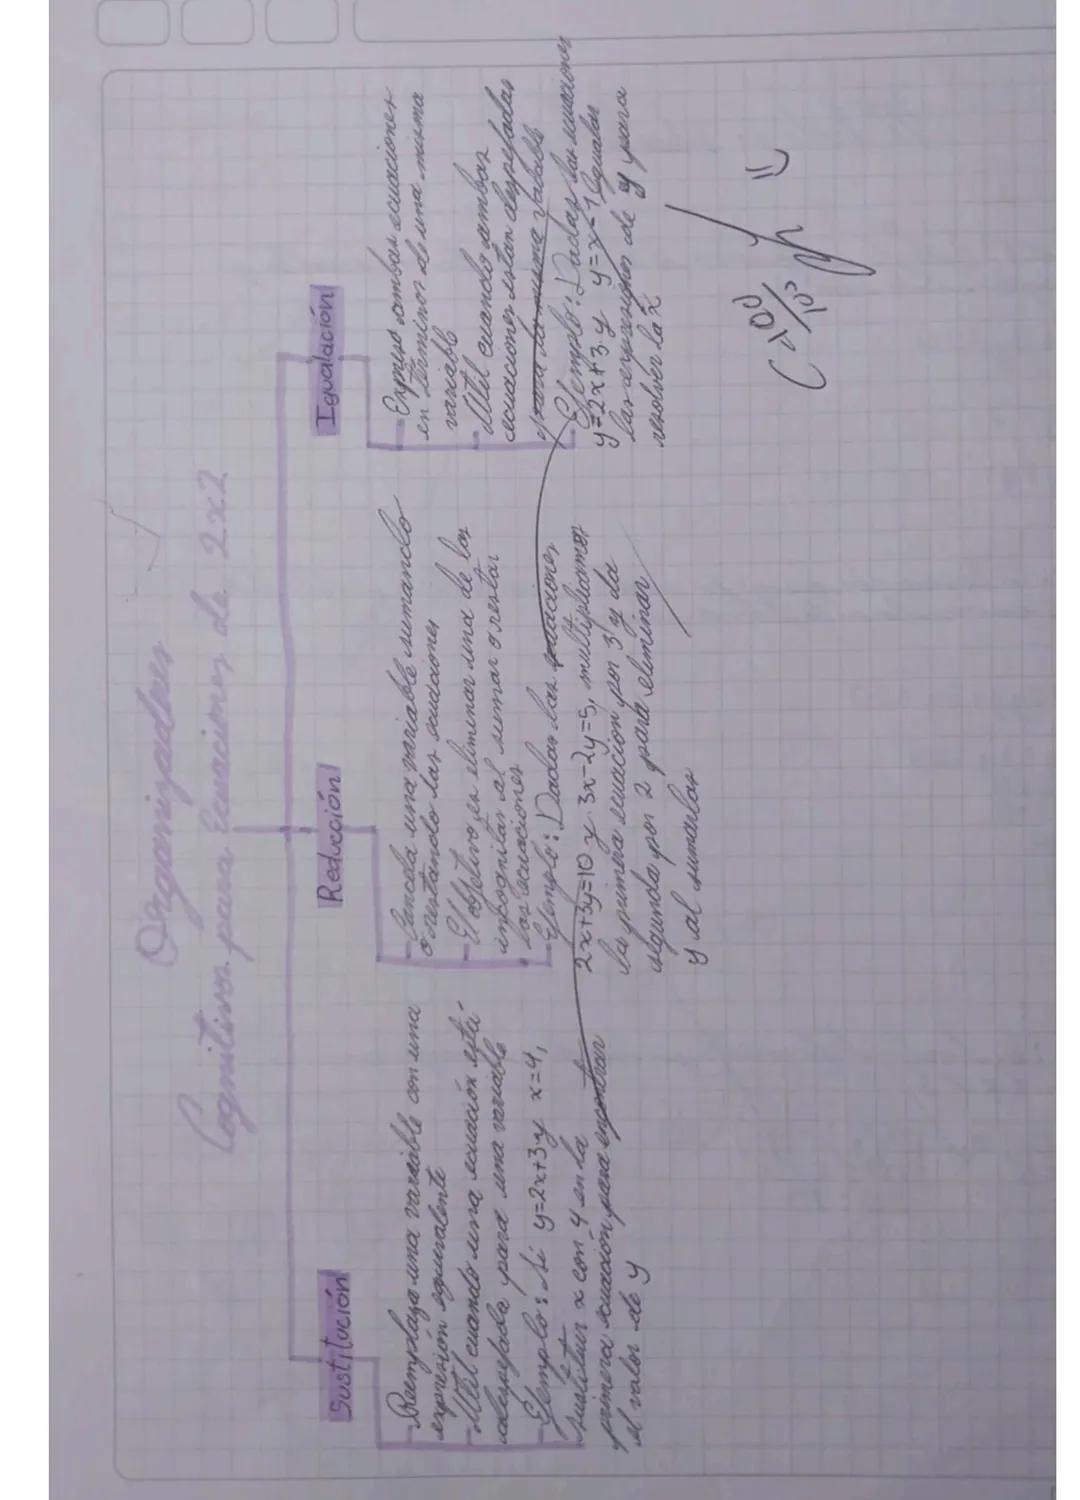 Organizadores
Cognitivos para Ecuaciones de 2x2
Sustitución
- Reemplaza una variable con una
expresión equivalente
- Útil cuando una ecuación está
despejada para una variable
- Ejemplo: Si y=2x+3 y x=4,
sustituir x con 4 en la
primera ecuación para encontrar
el valor de y
Reducción
- Cancela una variable sumando
o restando las ecuaciones
- El objetivo es eliminar una de las
incognitas al sumar o restar
las ecuaciones
- Ejemplo: Dadas las ecuaciones
2x+3y=10 y 3x-2y=5, multiplicamos
la primera ecuación por 3 y la
segunda por 2 para eliminar
y al sumarlas
Igualación
- Expresa ambas ecuaciones
en términos de una misma
variable
- Útil cuando ambas
ecuaciones están despejadas
para la misma variable
- Ejemplo: Dadas las ecuaciones
y=2x+3 y y=x-1 Igualar
las expresiones de y para
resolver la x
(100/100